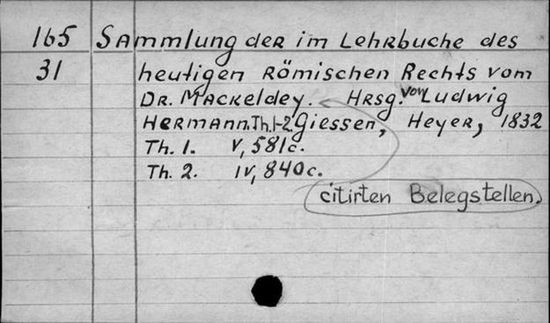 165 Sammlung der im Lehrbuche des
31 heutigen Römischen Rechts vom
Dr. Mackeldey. Hrsg. von Ludwig
Hermann. Th. 1-2. Giessen, Heyer, 1832
Th. 1. V, 581 c.
Th. 2. IV, 840 c.
citirten Belegstellen.